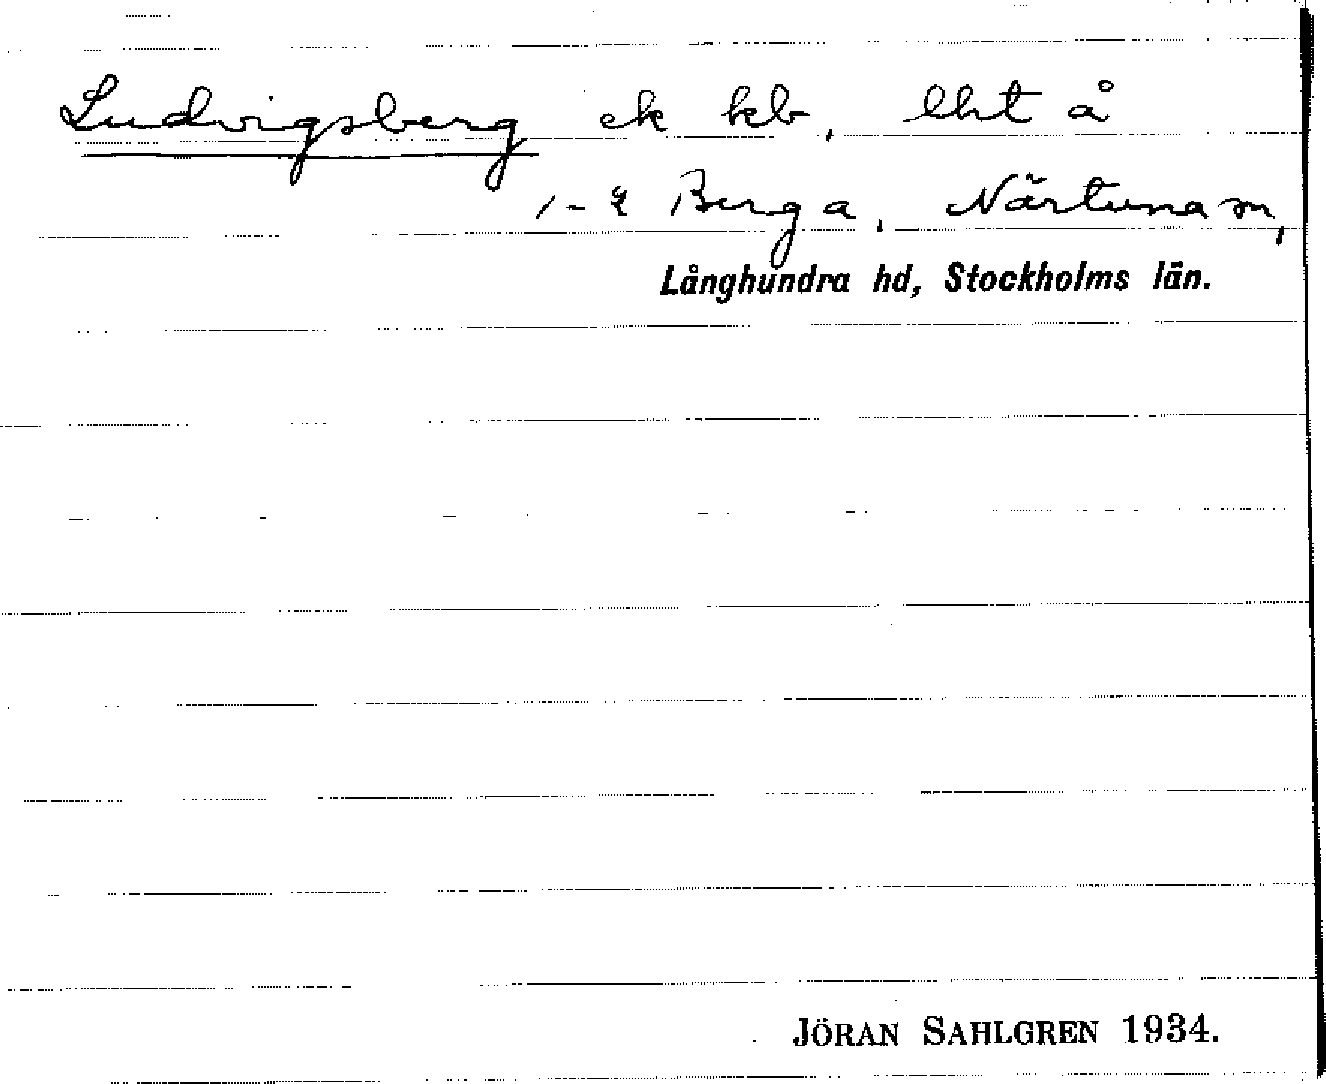 Ludvigsberg ek kb, lht å
1-2 Berga, Närtuna sn,
Långhundra hd, Stockholms län.
JÖRAN SAHLGREN 1934.